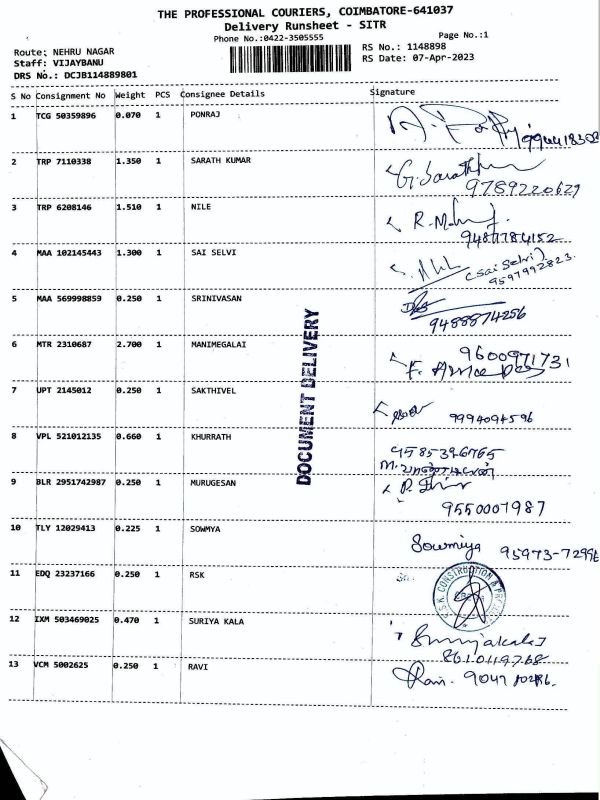 THE PROFESSIONAL COURIERS, COIMBATORE-641037
Delivery Runsheet - SITR
Phone No.:0422-3505555 Page No.:1
Route: NEHRU NAGAR RS No.: 1148898
Staff: VIJAYBANU RS Date: 07-Apr-2023
DRS No.: DCJB114889801
S No Consignment No Weight PCS Consignee Details Signature
1 TCG 50359896 0.070 1 PONRAJ
2 TRP 7110338 1.350 1 SARATH KUMAR G. Sarath
9789220629
3 TRP 6208146 1.510 1 NILE
9487784152
4 MAA 102145443 1.300 1 SAI SELVI (Sai Selvi)
9597992823.
5 MAA 569998859 0.250 1 SRINIVASAN
9488874256
6 MTR 2310687 2.700 1 MANIMEGALAI 9600971731
7 UPT 2145012 0.250 1 SAKTHIVEL 9994094596
8 VPL 521012135 0.660 1 KHURRATH 9585396765
9 BLR 2951742987 0.250 1 MURUGESAN
9550007987
10 TLY 12029413 0.225 1 SOWMYA Sowmiya 95973-72996
11 EDQ 23237166 0.250 1 RSK
12 IXM 503469025 0.470 1 SURIYA KALA
8610119768
13 VCM 5002625 0.250 1 RAVI Ravi.
DOCUMENT DELIVERY